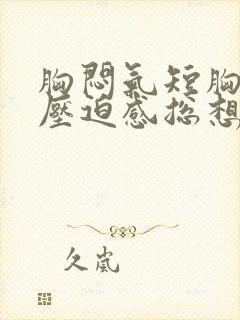 胸悶氣短胸
壓迫感總想
久嵐